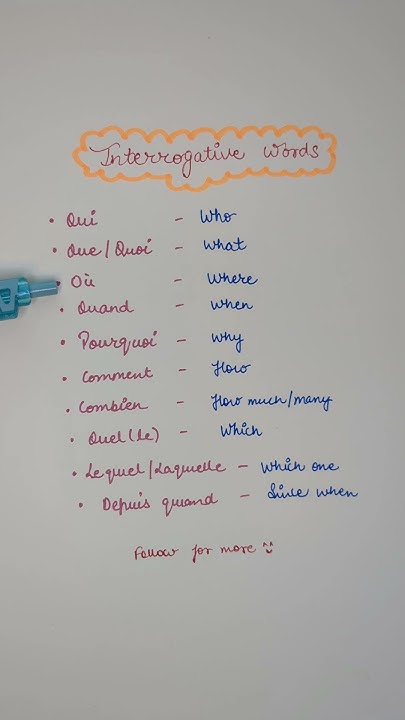 Interrogative Words
• Qui - Who
• Que/Quoi - What
• Où - Where
• Quand - When
• Pourquoi - Why
• Comment - How
• Combien - How much/many
• Quel(le) - Which
• Lequel/Laquelle - Which one
• Depuis quand - Since when
Follow for more